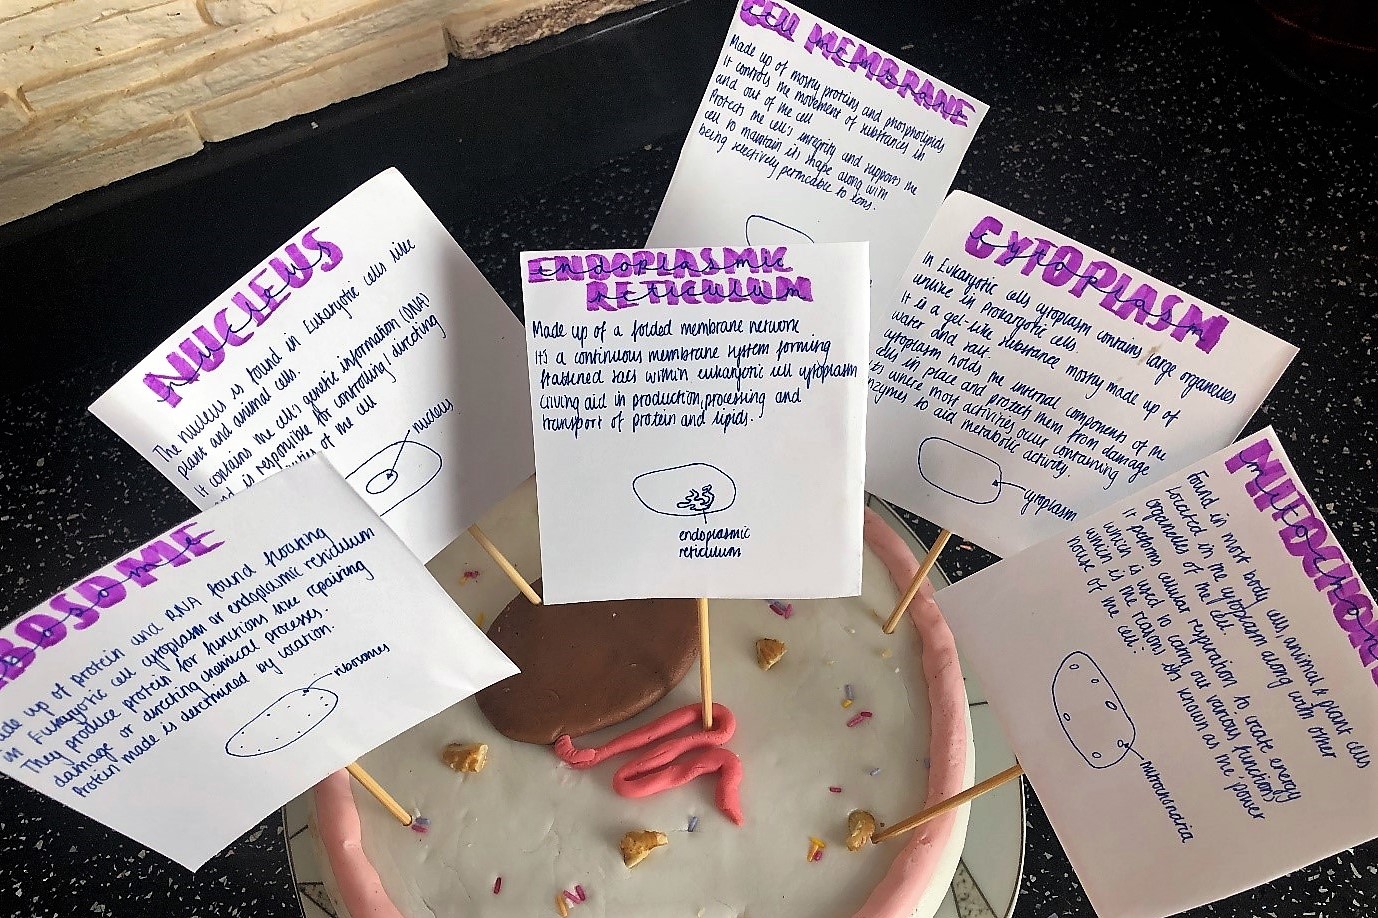 CELL MEMBRANE
Made up of mostly proteins and phospholipids
It controls the movement of substances in
and out of the cell
Protects the cell's integrity and supports the
cell to maintain its shape along with
being selectively permeable to ions.
NUCLEUS
The nucleus is found in Eukaryotic cells like
plant and animal cells.
It contains the cell's genetic information (DNA)
and is responsible for controlling/directing
of the cell
nucleus
ENDOPLASMIC
RETICULUM
Made up of a folded membrane network
Its a continuous membrane system forming
flattened sacs within eukaryotic cell cytoplasm
Giving aid in production, processing and
transport of protein and lipids.
endoplasmic
reticulum
CYTOPLASM
In Eukaryotic cells cytoplasm contains large organelles
unlike in Prokaryotic cells.
It is a gel-like substance mostly made up of
water and salt.
cytoplasm holds the internal components of the
cells in place and protect them from damage
its where most activities occur containing
enzymes to aid metabolic activity.
cytoplasm
BOSOME
ade up of protein and RNA found floating
in Eukaryotic cell cytoplasm or endoplasmic reticulum
They produce protein for functions like repairing
damage or directing chemical processes.
Protein made is determined by location.
ribosomes
MITOCHON
Found in most body cells, animal & plant cells
located in the cytoplasm along with other
organelles of the cell.
It performs cellular respiration to create energy
which is used to carry out various functions
which is the reason its known as the 'power
house of the cell'.
mitochondria